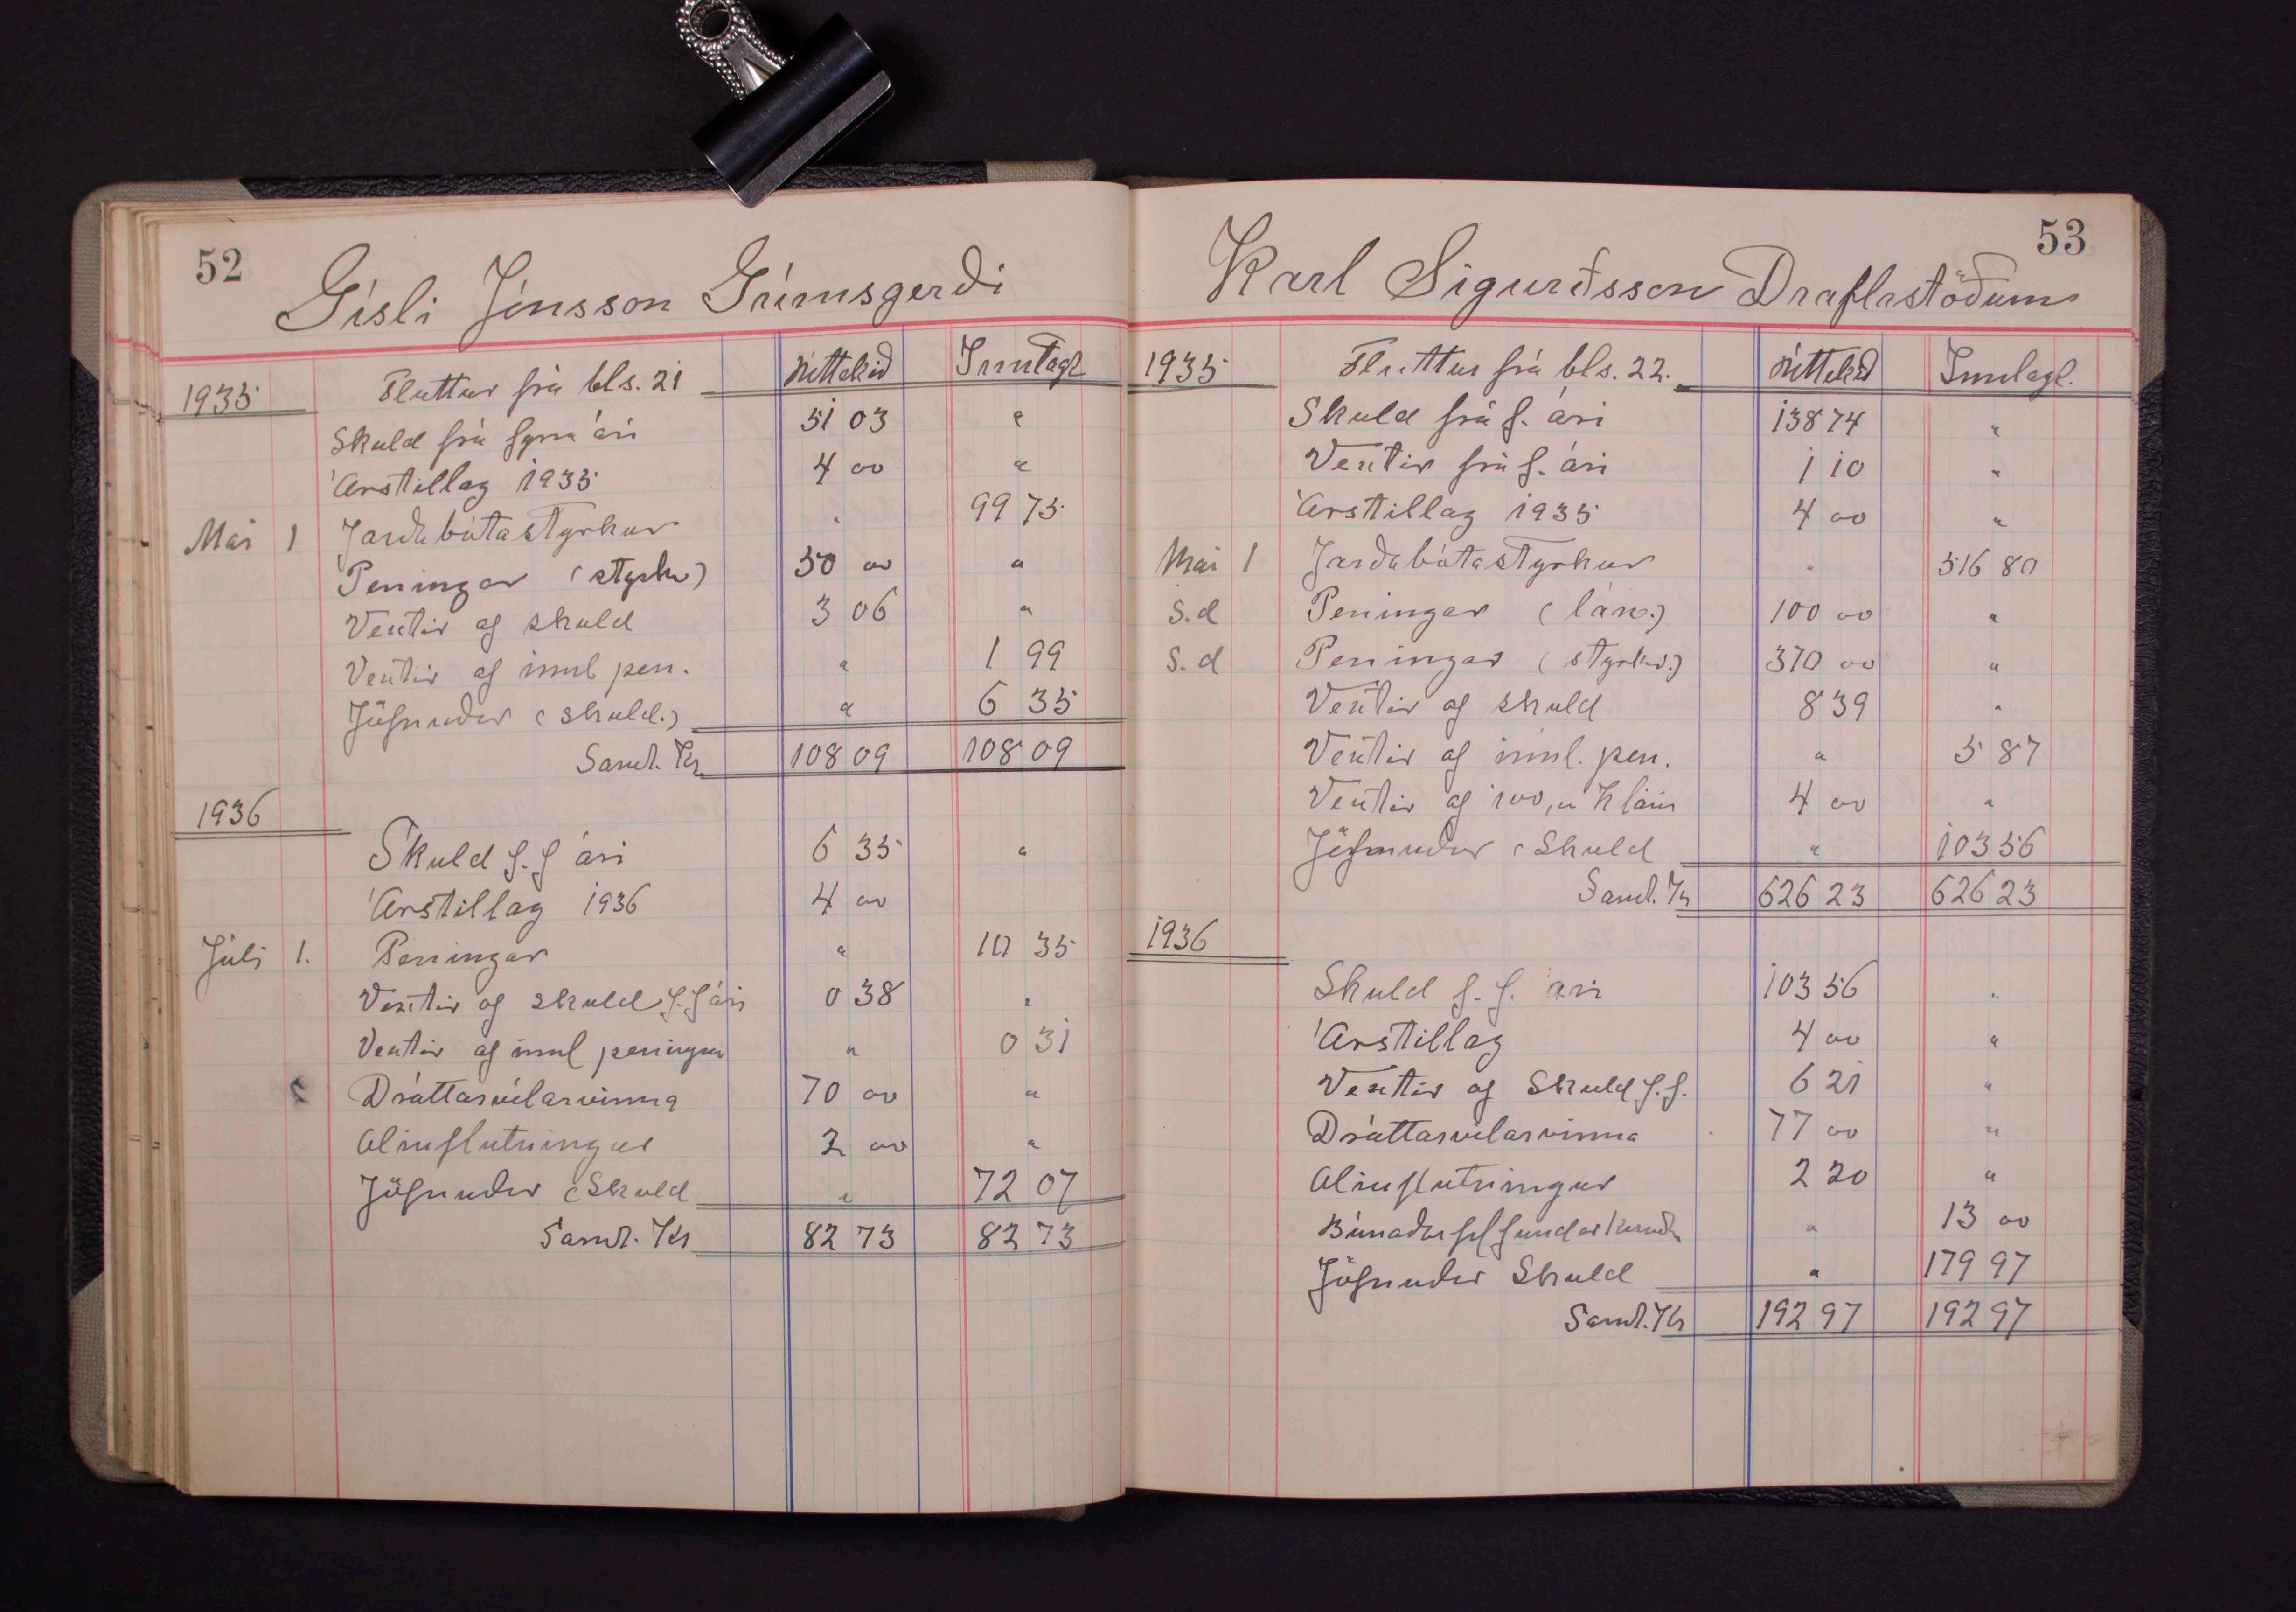 52
Gísli Jónsson Grímsgerði
1935 Fluttur frá bls. 21 Úttekið Innlagt
Skuld frá fyrra ári 51 03 "
Árstillag 1935 4 00 "
Maí 1 Jarðabótastyrkur " 99 75
Peningar (styrkur) 50 00 "
Vextir af skuld 3 06 "
Vextir af innl pen. " 1 99
Jöfnuður (skuld.) " 6 35
Saml. Kr 108 09 108 09
1936
Skuld f. f ári 6 35 "
Árstillag 1936 4 00
Júlí 1. Peningar " 10 35
Vextir af skuld f. f ári 0 38 "
Vextir af innl peningum " 0 31
Dráttarvélarvinna 70 00 "
Álinflutningur 2 00 "
Jöfnuður (Skuld " 72 07
Saml. Kr 82 73 82 73
53
Karl Sigurðsson Draflastöðum
1935 Fluttur frá bls. 22. Úttekið Innlagt.
Skuld frá f. ári 138 74 "
Vextir frá f. ári 1 10 "
Árstillag 1935 4 00 "
Maí 1 Jarðabótastyrkur " 516 80
S.d Peningar (lán.) 100 00 "
S.d Peningar (styrkur.) 370 00 "
Vextir af skuld 8 39 "
Vextir af innl. pen. " 5 87
Vextir af 100,00 K láni 4 00 "
Jöfnuður (Skuld " 103 56
Saml. Kr 626 23 626 23
1936
Skuld f. f. ári 103 56 "
Árstillag 4 00 "
Vextir af Skuld f. f. 6 21 "
Dráttarvélarvinna 77 00 "
Álinflutningur 2 20 "
Búnaðarfél " 13 00
Jöfnuður Skuld " 179 97
Saml. Kr 192 97 192 97